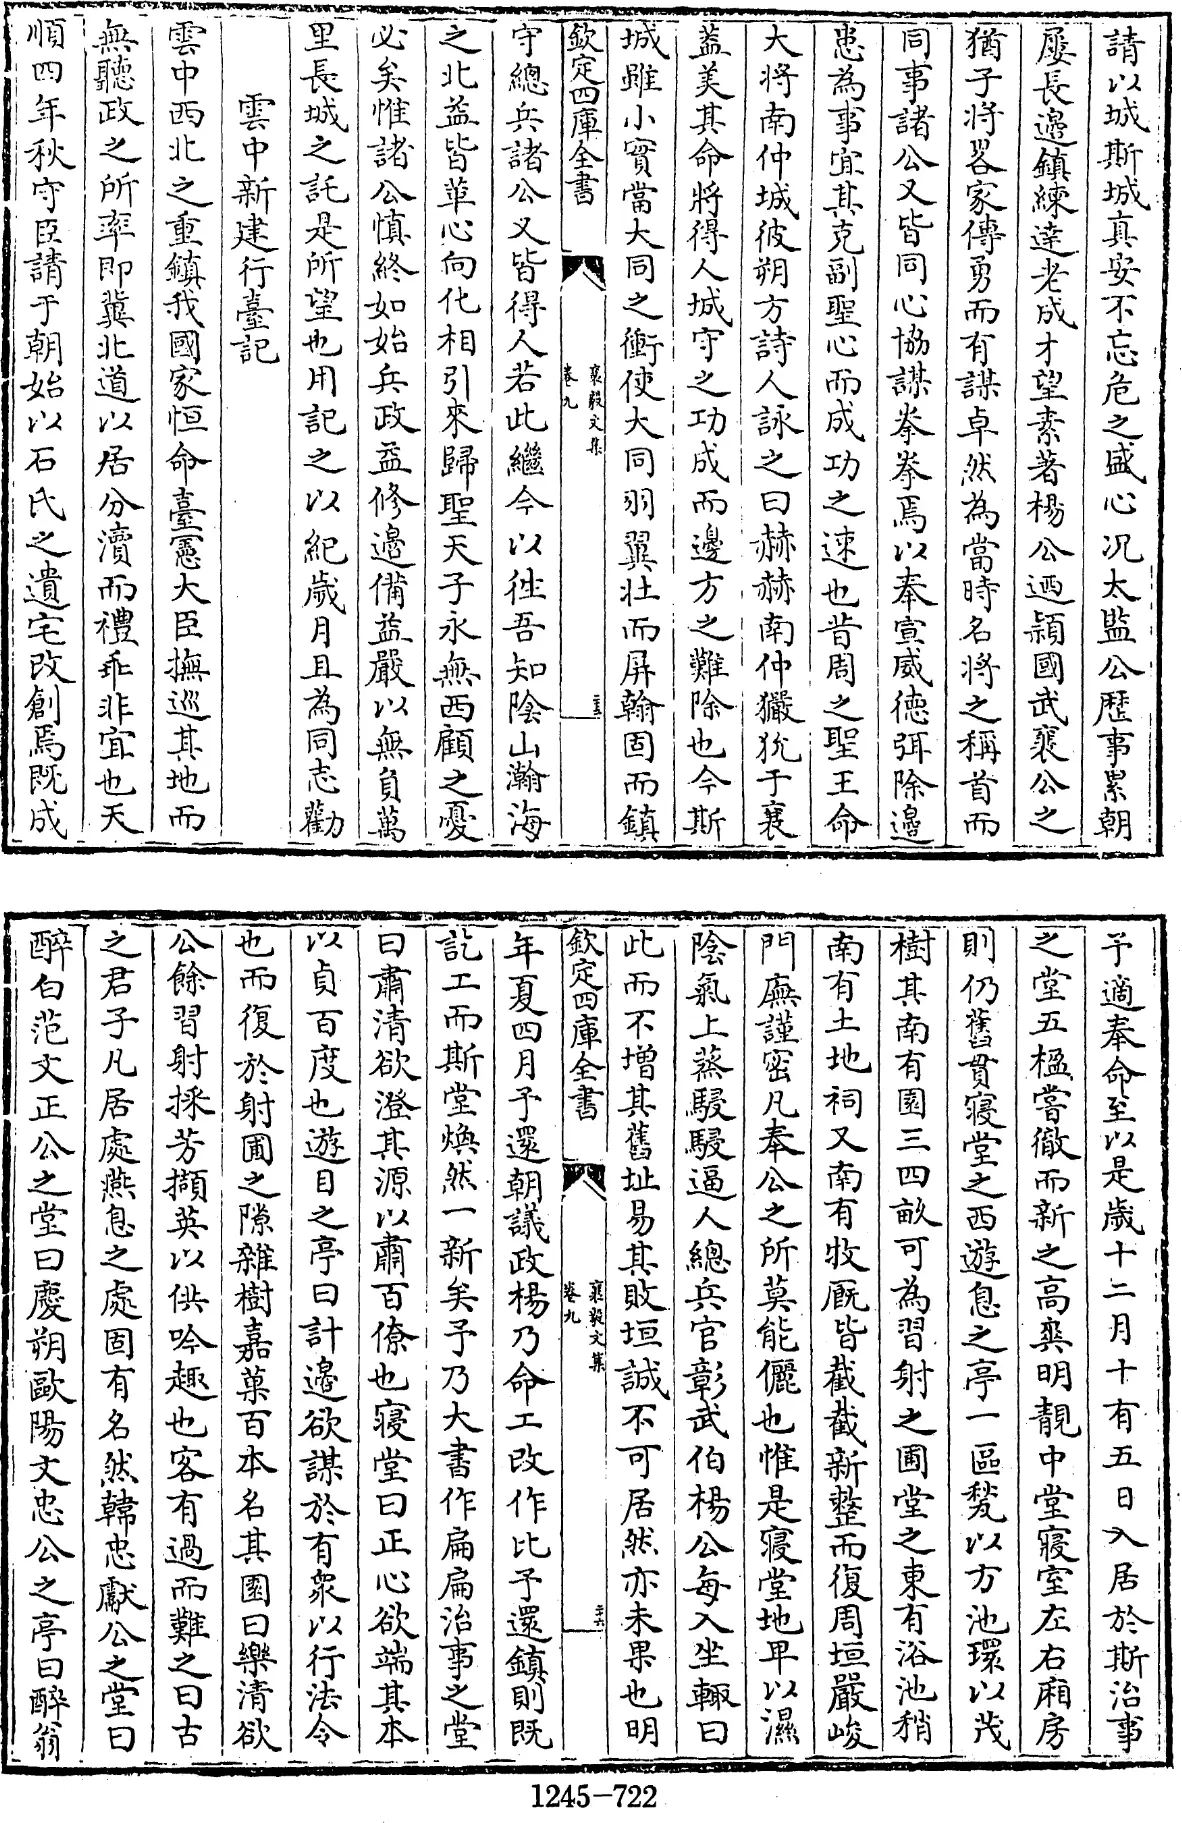 請以城斯城真安不忘危之盛心况太監公歷事累朝
屢長邊鎮練達老成才望素著楊公迺穎國武襄公之
猶子將畧家傳勇而有謀卓然為當時名將之稱首而
同事諸公又皆同心協謀拳拳焉以奉宣威德弭除邊
患為事宜其克副聖心而成功之速也昔周之聖王命
大將南仲城彼朔方詩人詠之曰赫赫南仲玁狁于襄
蓋美其命將得人城守之功成而邊方之難除也今斯
城雖小實當大同之衝使大同羽翼壯而屏翰固而鎮
欽定四庫全書
襄毅文集
卷九
守總兵諸公又皆得人若此繼今以徃吾知陰山瀚海
之北益皆革心向化相引來歸聖天子永無西顧之憂
必矣惟諸公慎終如始兵政益修邊備益嚴以無負萬
里長城之託是所望也用記之以紀歲月且為同志勸
雲中新建行臺記
雲中西北之重鎮我國家恒命臺憲大臣撫巡其地而
無聽政之所率即冀北道以居分瀆而禮乖非宜也天
順四年秋守臣請于朝始以石氏之遺宅改創焉既成
予適奉命至以是歲十二月十有五日入居於斯治事
之堂五楹嘗徹而新之高爽明靚中堂寢室左右廂房
則仍舊貫寢堂之西遊息之亭一區甃以方池環以茂
樹其南有園三四畝可為習射之圃堂之東有浴池稍
南有土地祠又南有牧厩皆截截新整而復周垣嚴峻
門廡謹密凡奉公之所莫能儷也惟是寢堂地卑以濕
陰氣上蒸駸駸逼人總兵官彰武伯楊公每入坐輙曰
此而不增其舊址易其敗垣誠不可居然亦未果也明
欽定四庫全書
襄毅文集
卷九
二六
年夏四月予還朝議政楊乃命工改作比予還鎮則既
訖工而斯堂煥然一新矣予乃大書作扁扁治事之堂
曰肅清欲澄其源以肅百僚也寢堂曰正心欲端其本
以貞百度也遊目之亭曰計邊欲謀於有衆以行法令
也而復於射圃之隙雜樹嘉菓百本名其園曰樂清欲
公餘習射採芳擷英以供吟趣也客有過而難之曰古
之君子凡居處燕息之處固有名然韓忠獻公之堂曰
醉白范文正公之堂曰慶朔歐陽文忠公之亭曰醉翁
1245-722